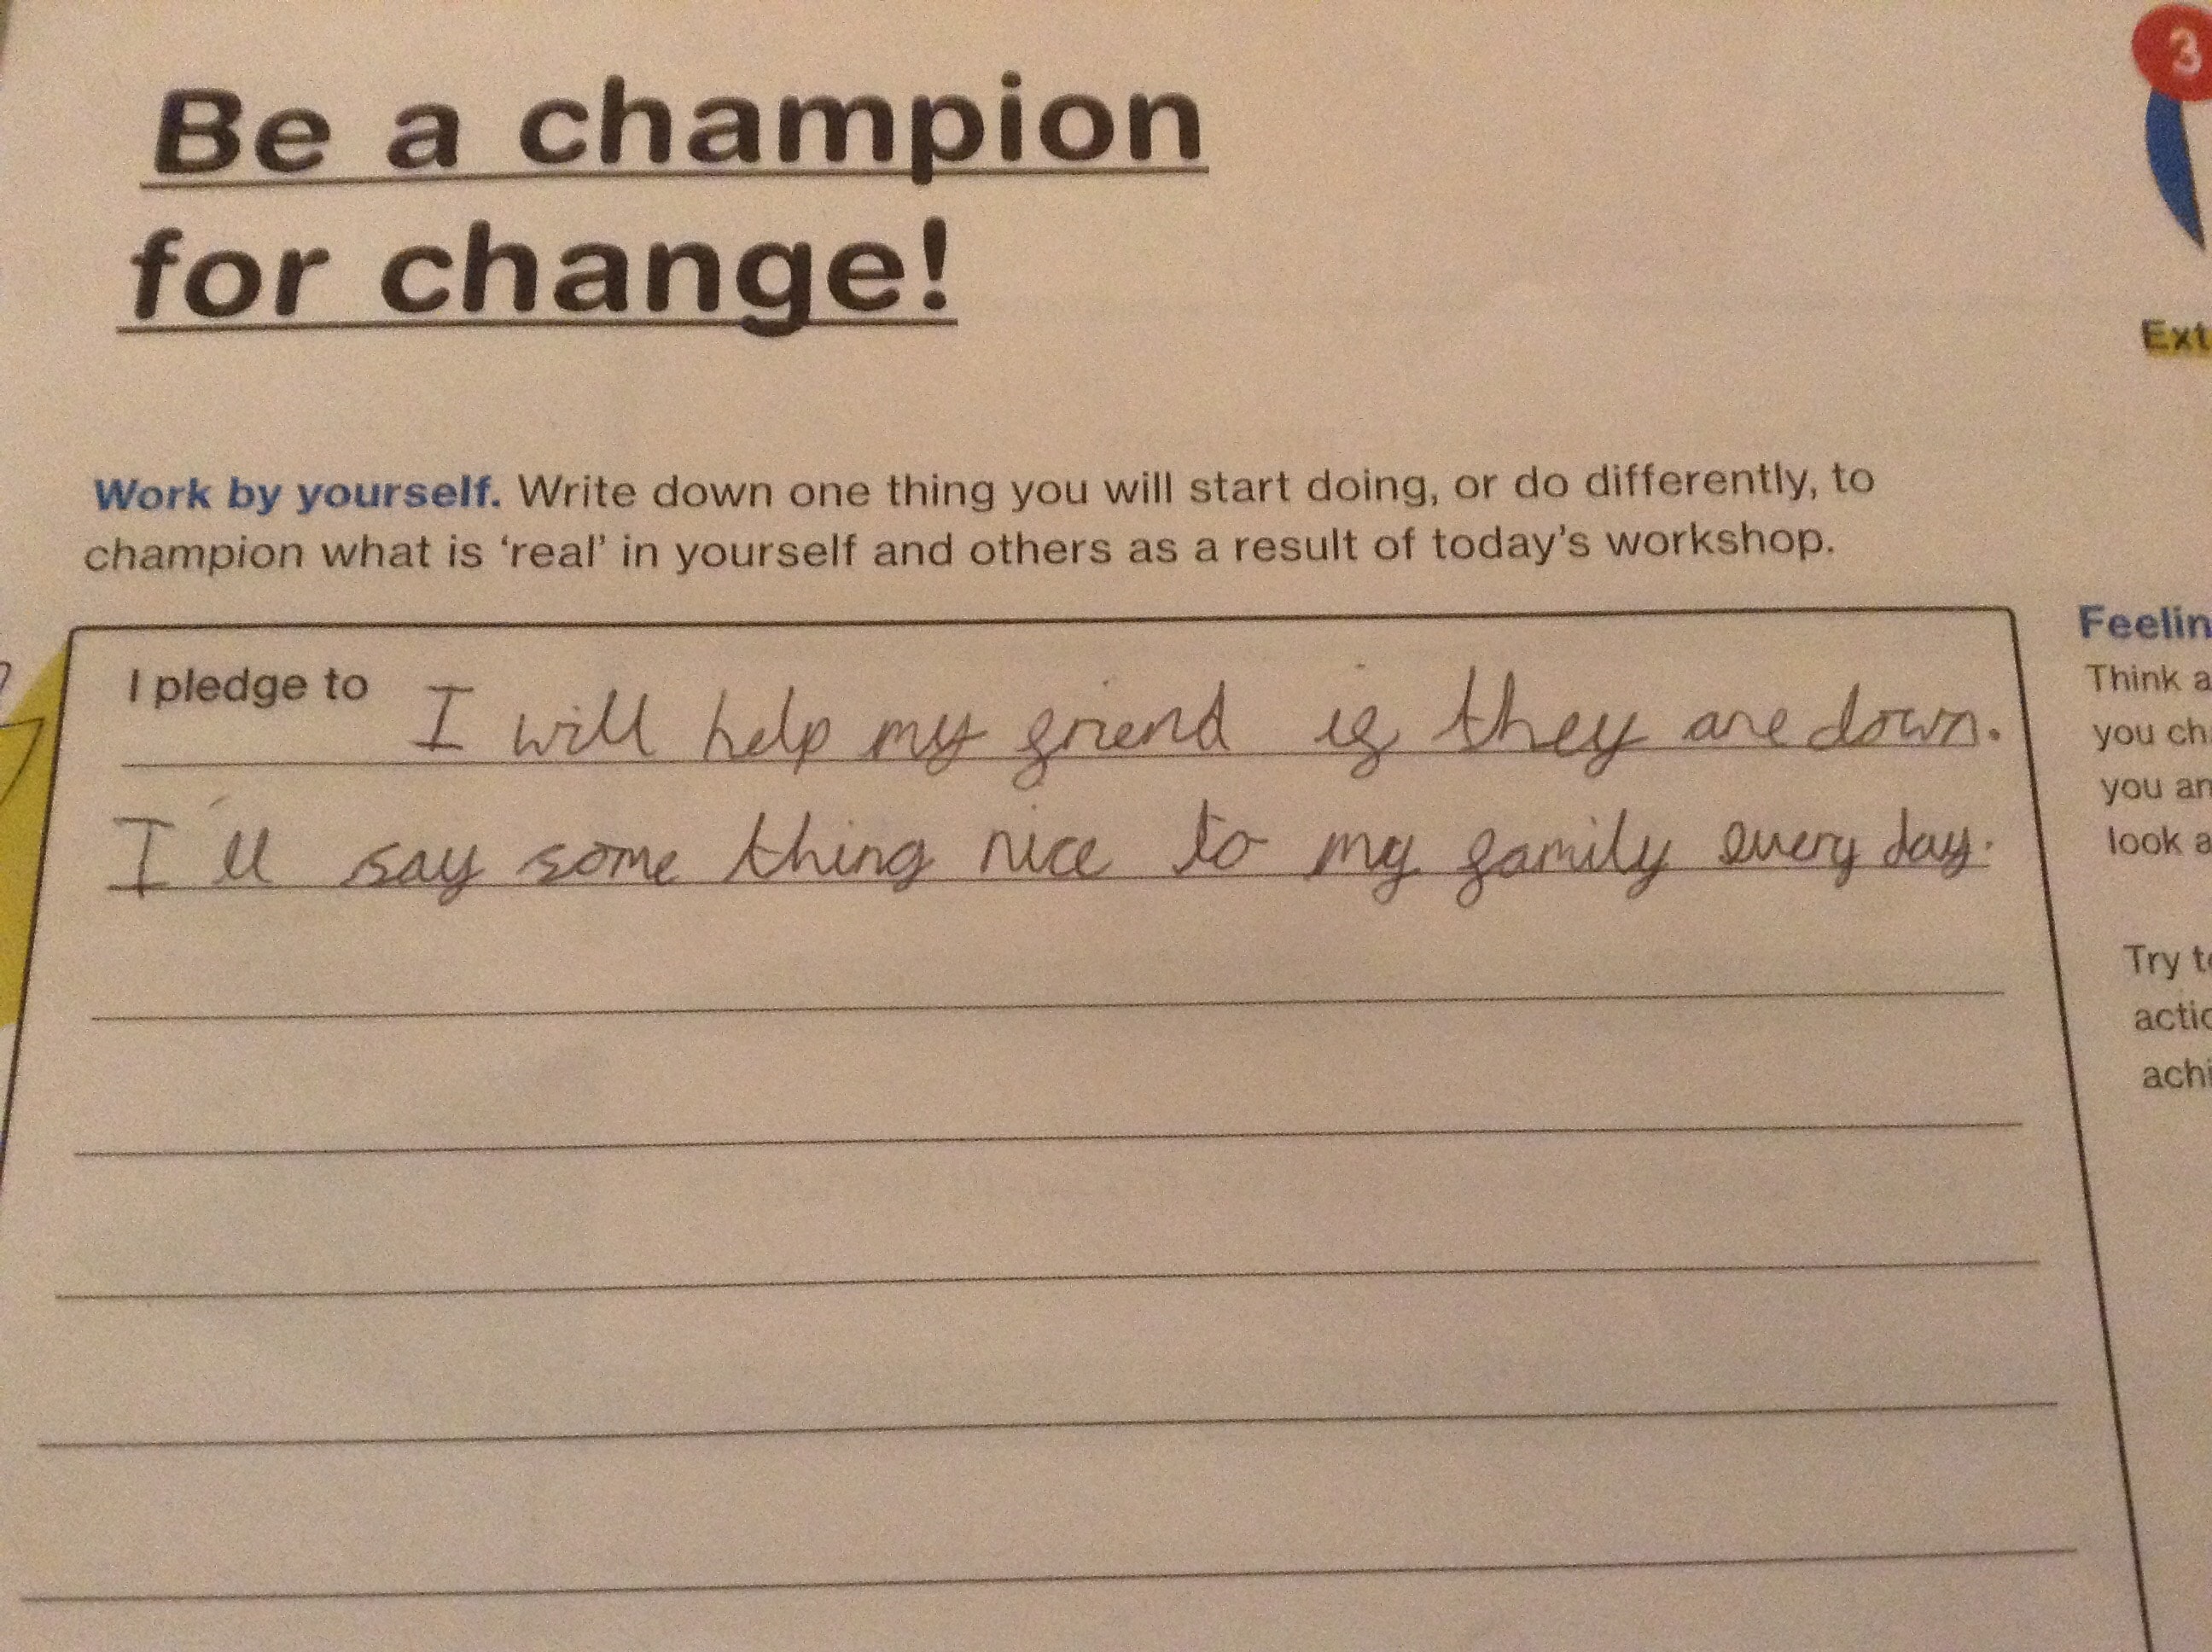 3
Be a champion
for change!
Ext
Work by yourself. Write down one thing you will start doing, or do differently, to
champion what is ‘real’ in yourself and others as a result of today’s workshop.
I pledge to I will help my friend if they are down.
I'll say some thing nice to my family every day.
Feelin
Think a
you ch
you an
look a
Try t
actio
achi